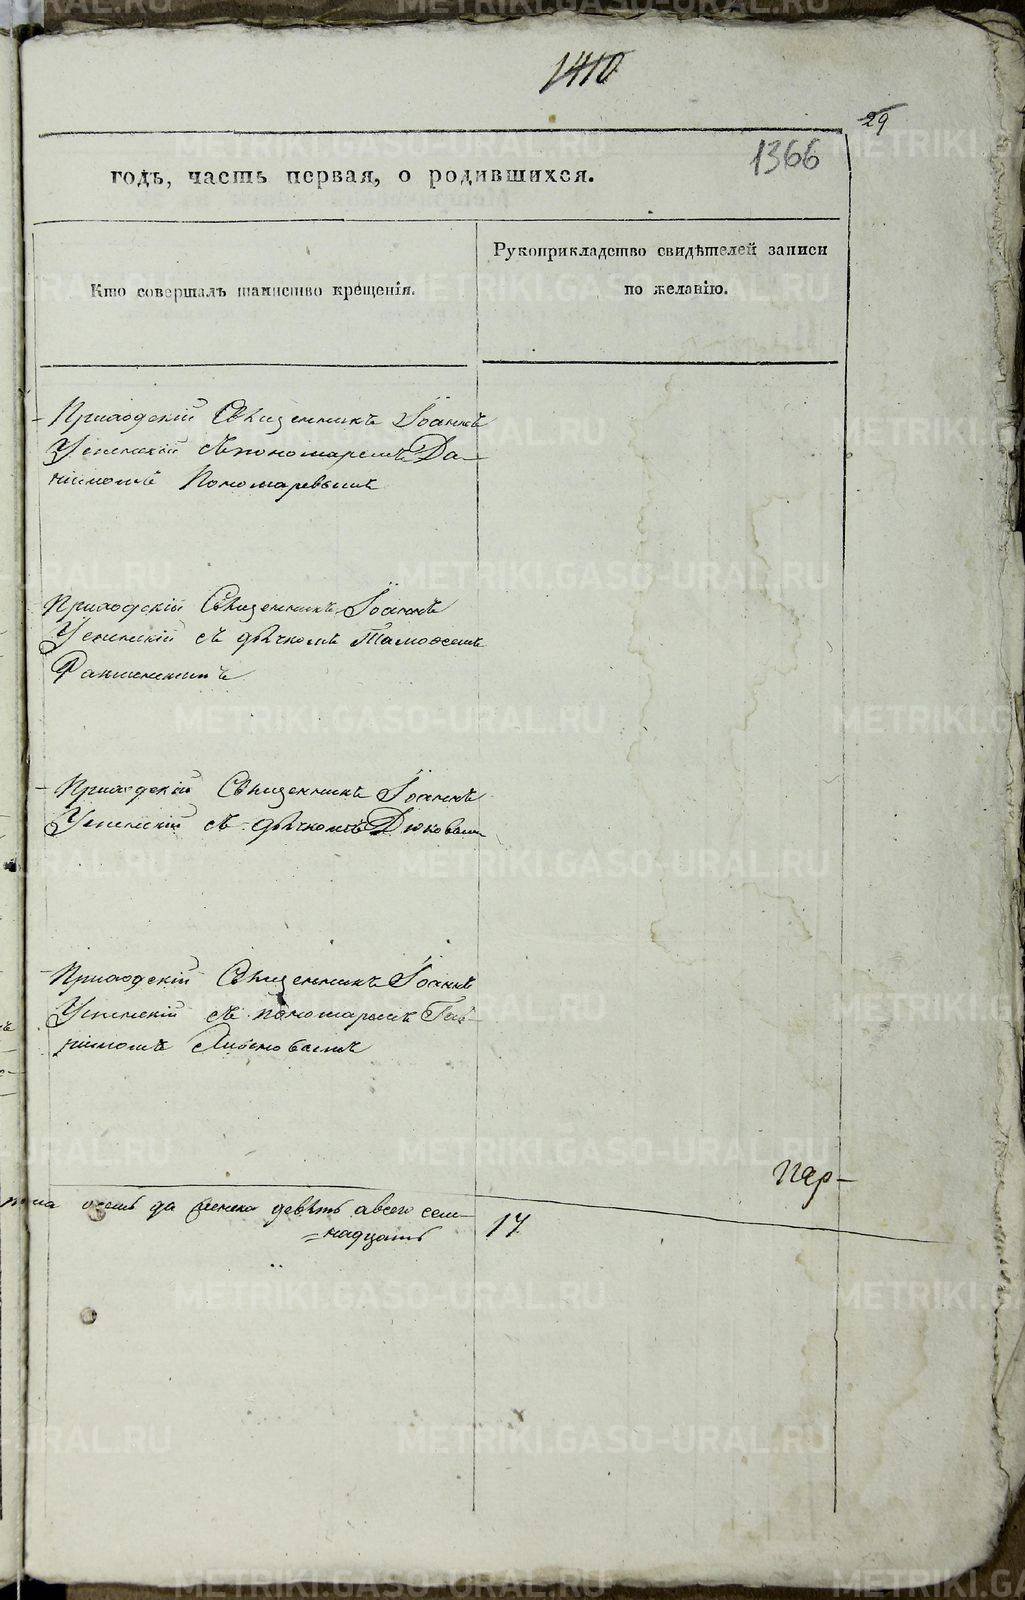 1410
29
1366
годъ, часть первая, о родившихся.
Кто совершалъ таинство крещенія.
Рукоприкладство свидѣтелей записи
по желанію.
Приходскій Священникъ Іоаннъ
Успенскій съ пономаремъ Да-
ніиломъ Пономаревымъ
Приходскій Священникъ Іоаннъ
Успенскій съ дьячкомъ
Приходскій Священникъ Іоаннъ
Успенскій съ дьячкомъ Дюковым
Приходскій Священникъ Іоаннъ
Успенскій съ пономаремъ
осемь да женска девять а всего сем-
=надцать
17
METRIKI.GASO-URAL.RU